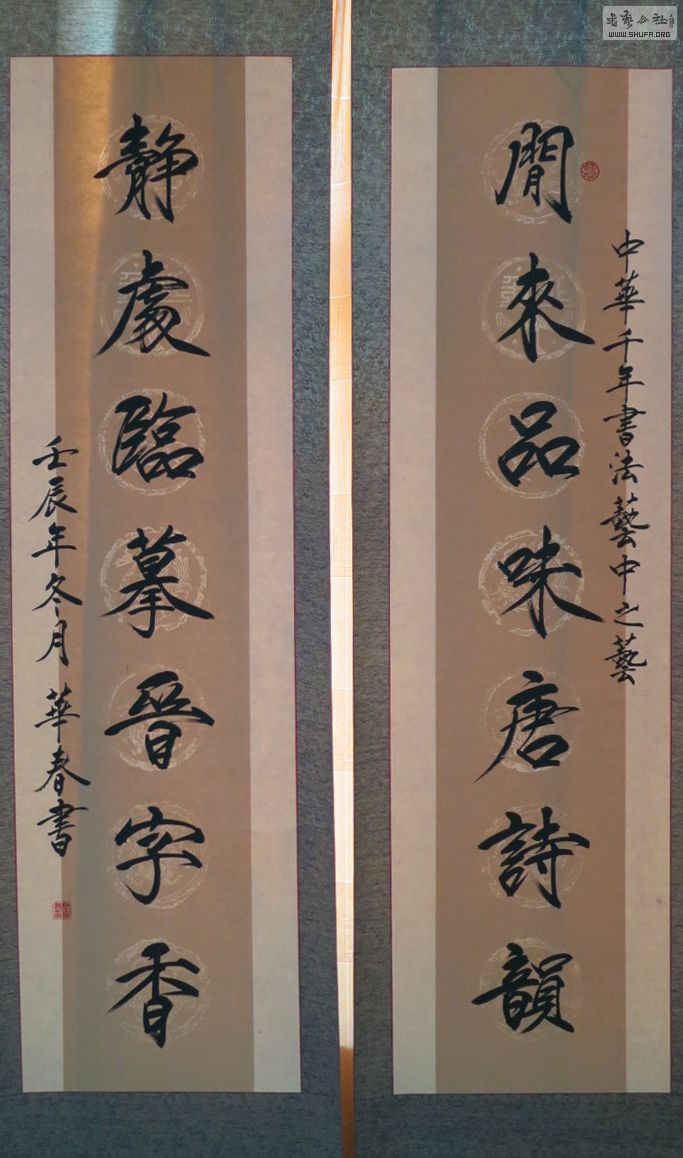 閒來品味唐詩韻
中華千年書法藝中之藝
靜處臨摹晉字香
壬辰年冬月 華春書
書藝公社
WWW.SHUFA.ORG